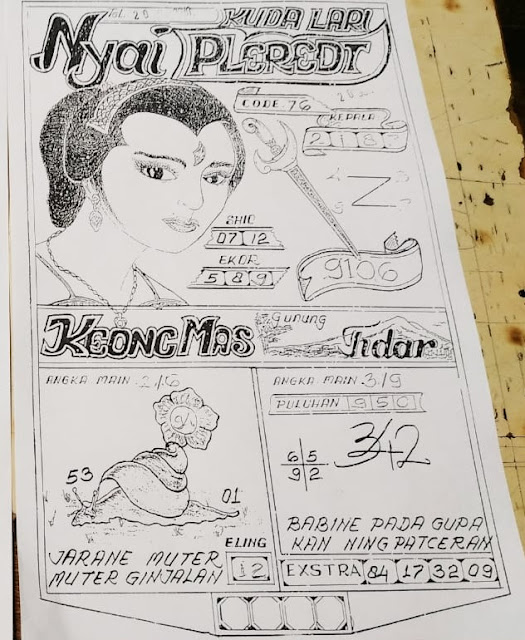 KUDA LARI
Nyai PLEREDT
CODE 76
KEPALA
2 1 8
SHIO
07 12
EKOR
5 8 9
9106
KEONG MAS
gunung
Tidar
ANGKA MAIN 2/6
53
01
ELING
12
JARANE MUTER
MUTER GINJALAN
ANGKA MAIN 3/9
PULUHAN 9 5 0
6 5
9 2
342
BABINE PADA GUPA
KAN NING PATCERAN
EXSTRA 84 17 32 09